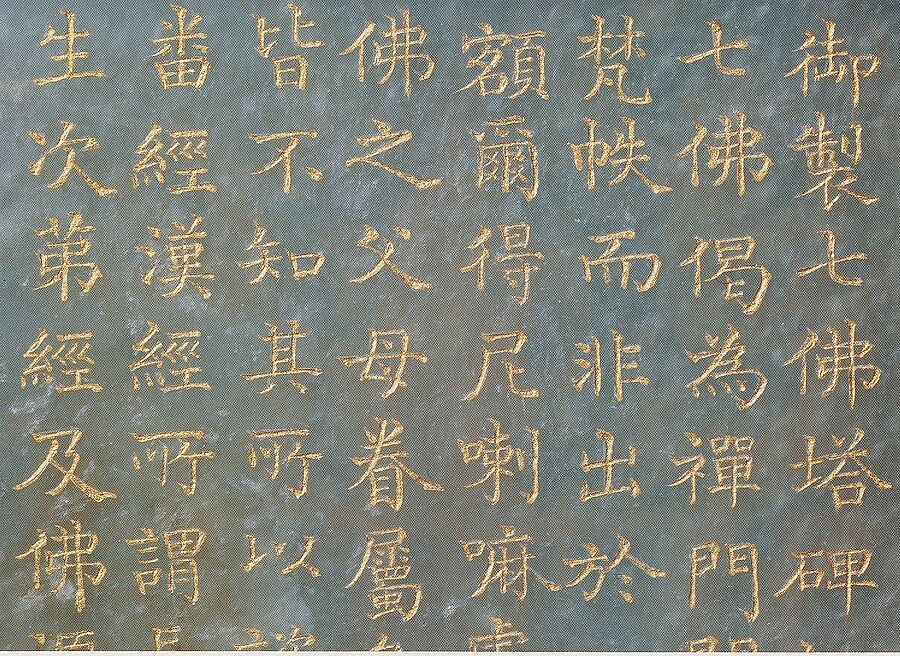 御製七佛塔碑
七佛偈為禪門
梵帙而非出於
額爾得尼喇嘛
佛之父母眷屬
皆不知其所以
番經漢經所謂
生次第經及佛